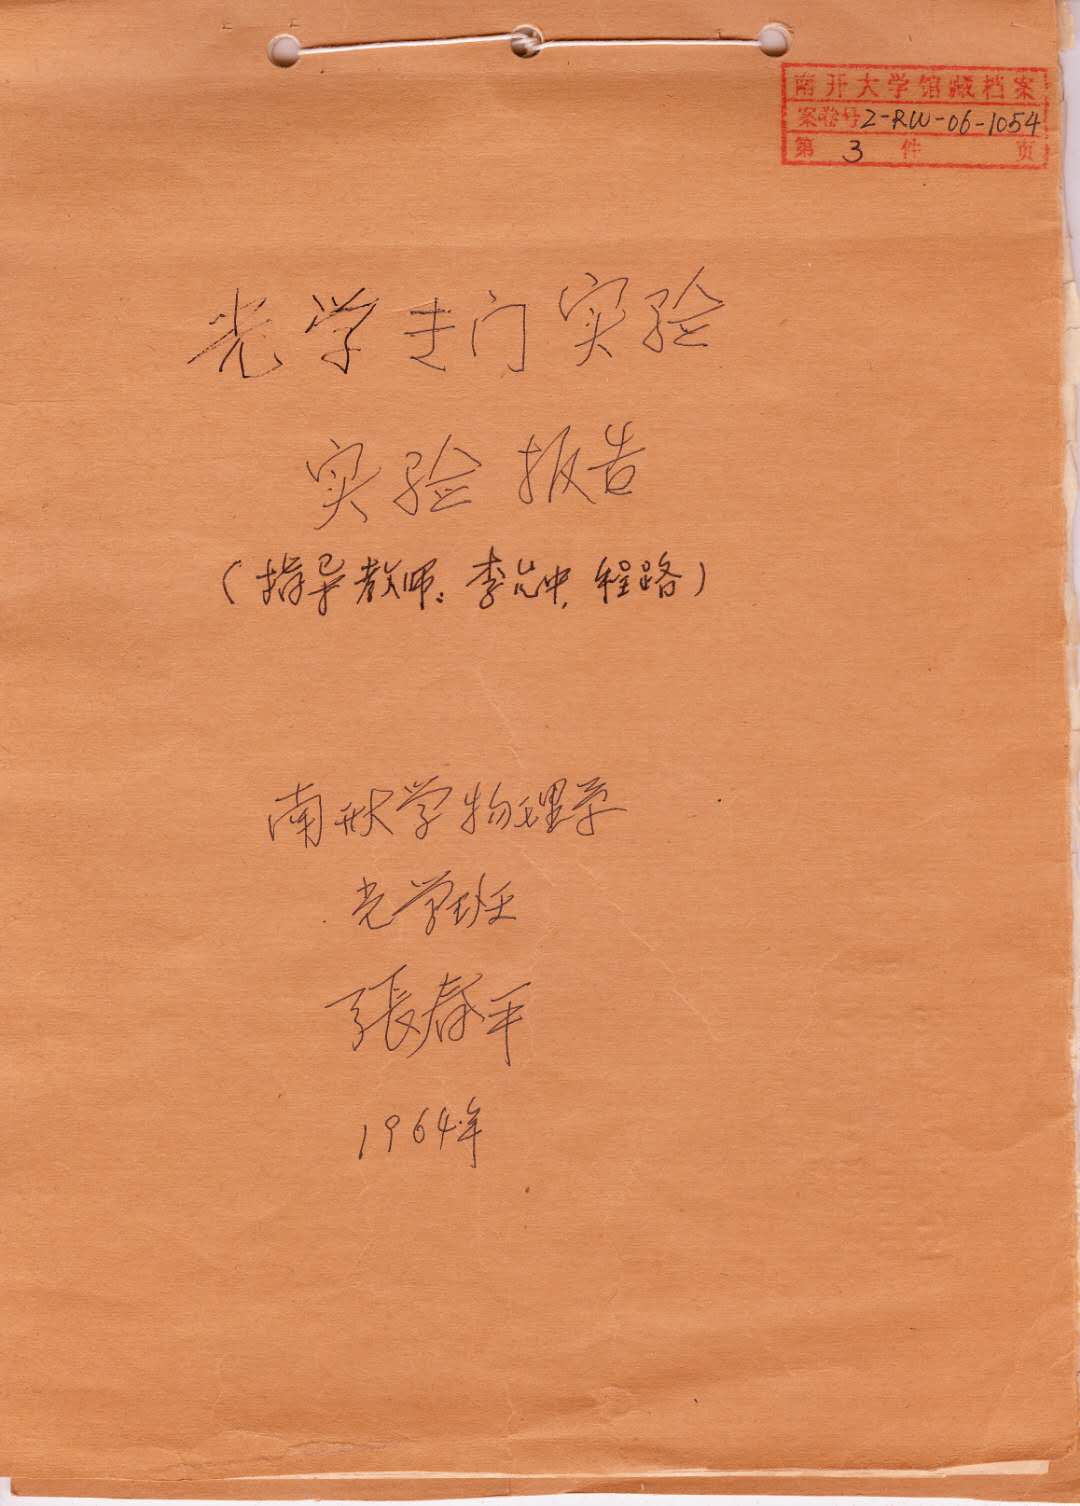 南开大学馆藏档案
案卷号 2-RW-06-1054
第 3 件 页
光学专门实验
实验报告
(指导教师:李允中,程路)
南开大学物理系
光学班
張春平
1964年